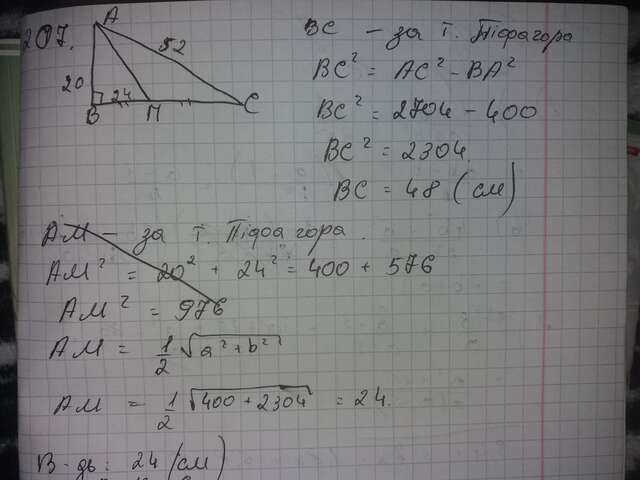 207.
A
52
20
24
В
М
С
ВС - за т. Піфагора
BC² = AC² - BA²
BC² = 2704 - 400
BC² = 2304
BC = 48 (см)
AM - за т. Піфагора.
AM² = 20² + 24² = 400 + 576
AM² = 976
AM = 1/2 √a² + b²
AM = 1/2 √400 + 2304 = 24.
В-дь: 24 (см)